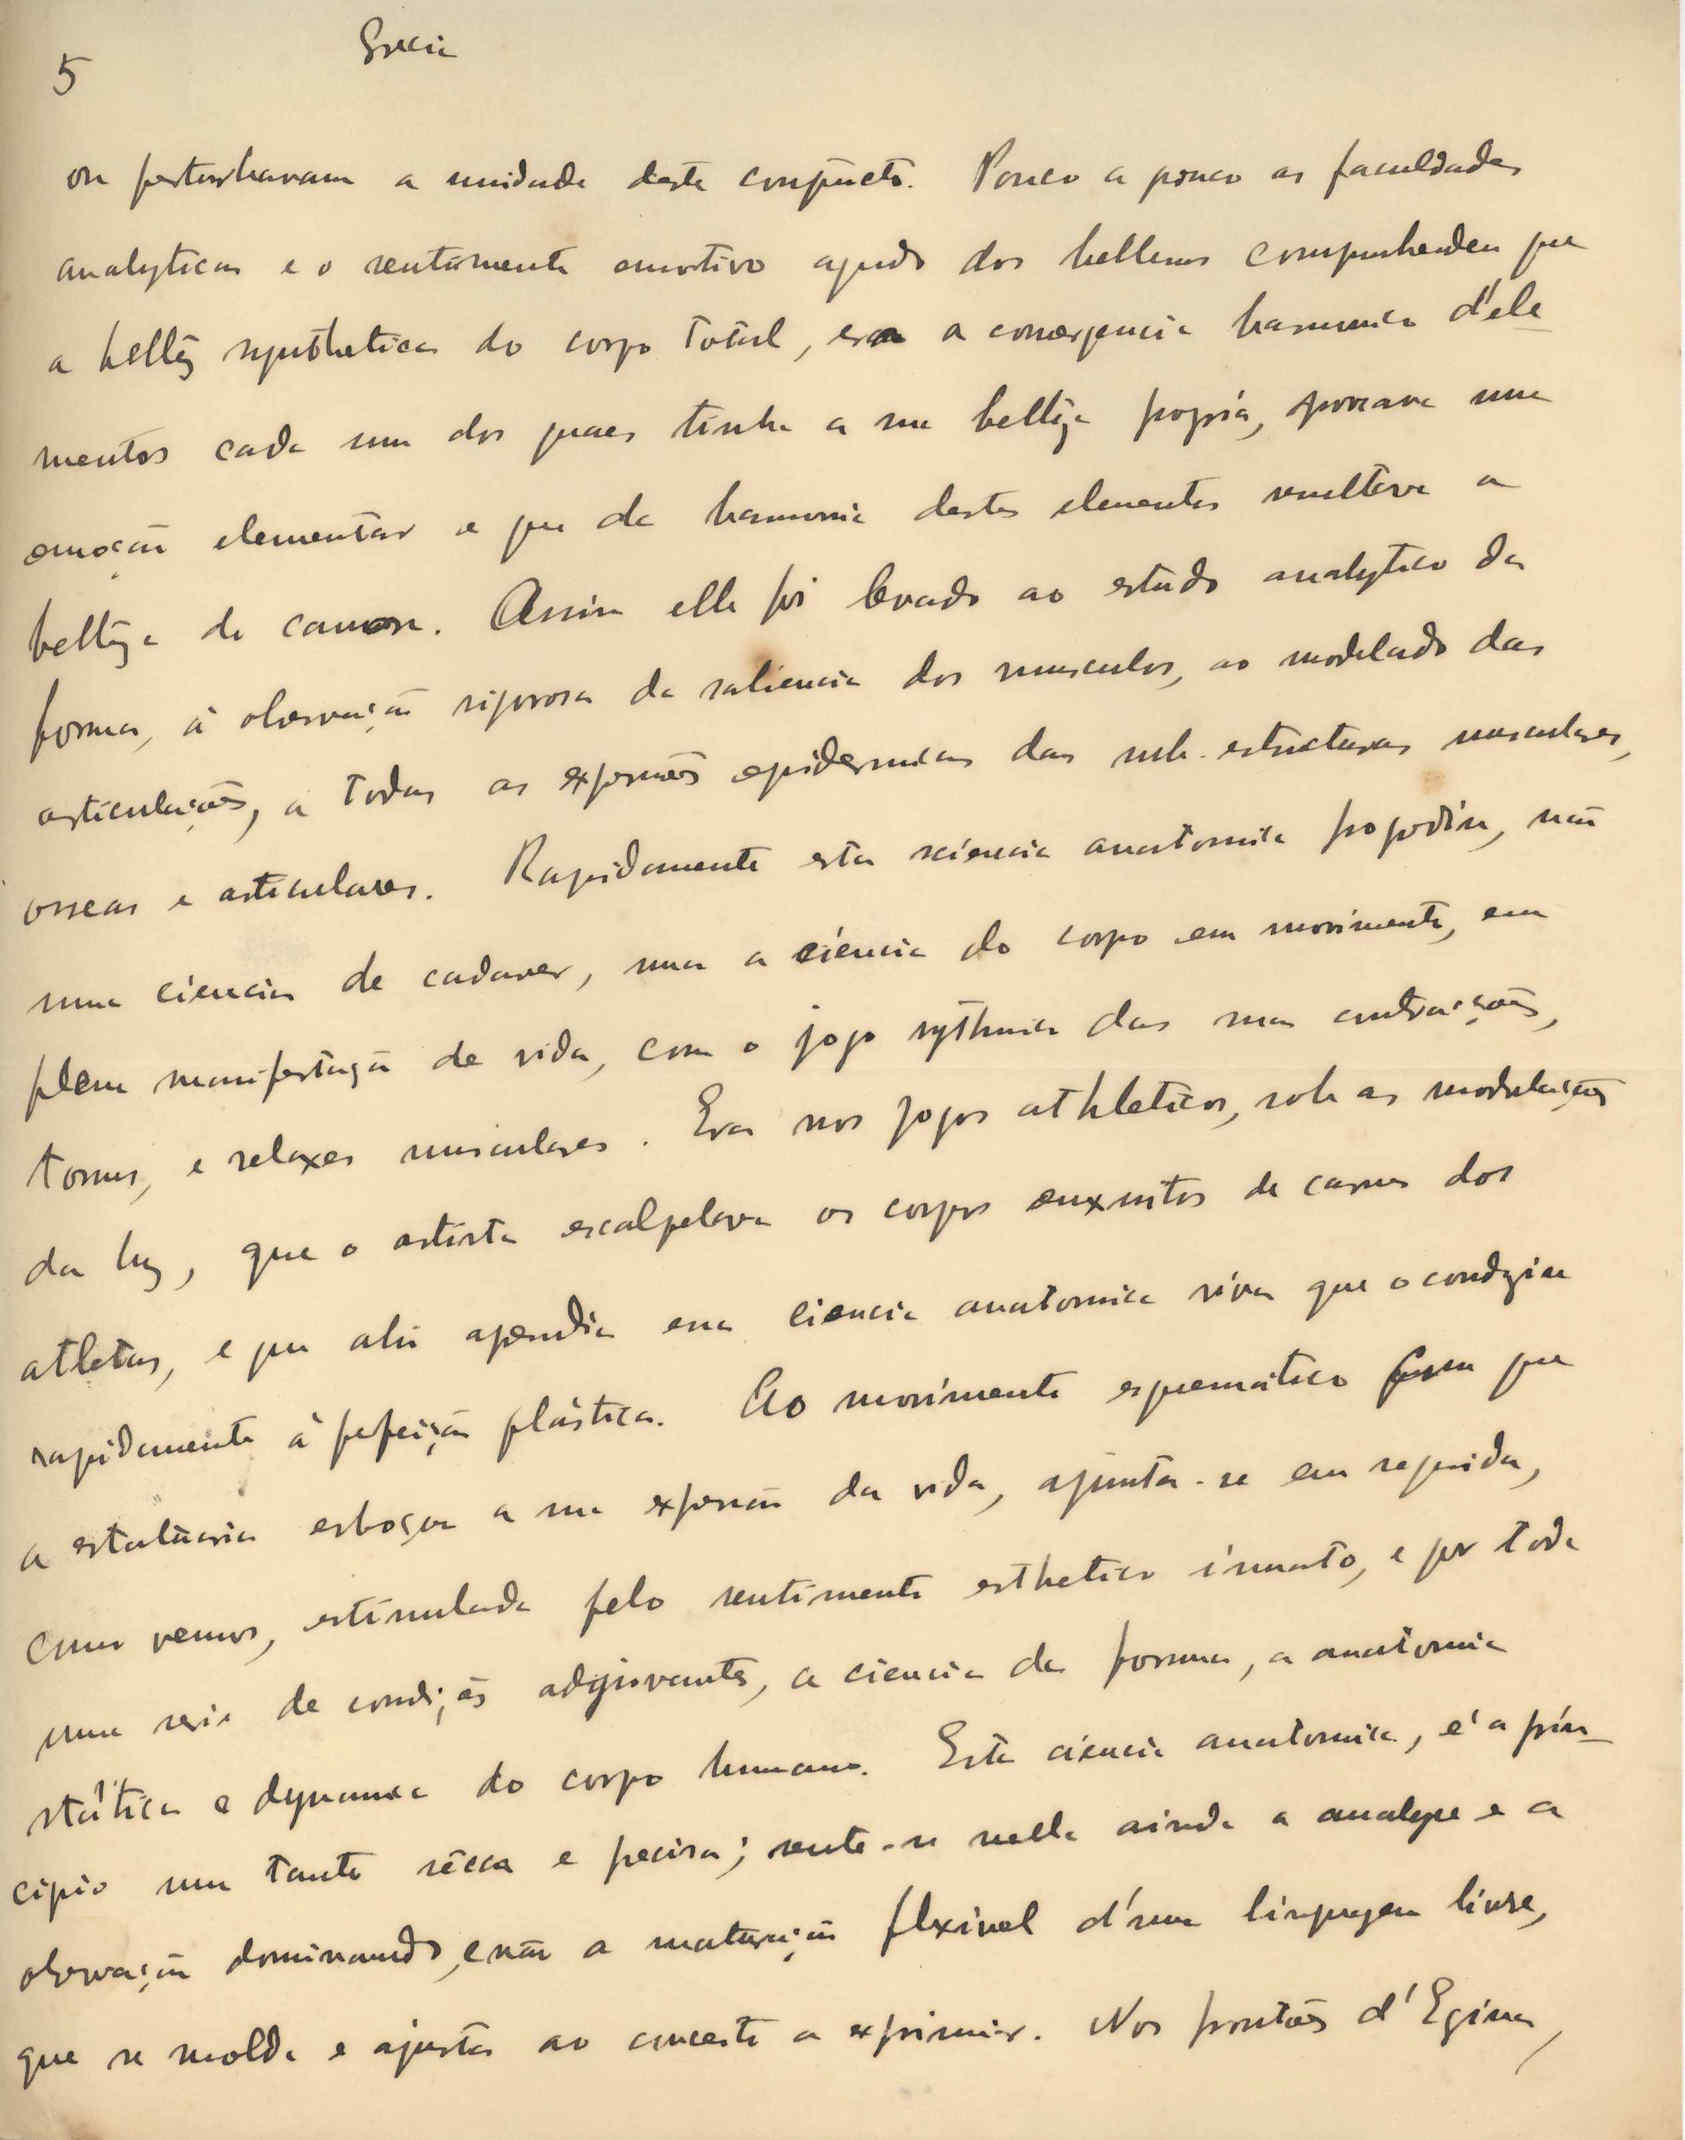 5 Grecia
ou perturbavam a unidade deste conjuncto. Pouco a pouco as faculdades
analyticas e o sentimento emotivo agudo dos hellenos comprehendeu que
a belleza synthetica do corpo total, era a convergencia harmonica d'ele
mentos cada um dos quaes tinha a sua belleza propria, provocava uma
emoção elementar e que da harmonia destes elementos resultava a
belleza do
forma, à observação rigorosa da saliencia dos musculos, ao modelado das
articulações, a todas as expressões epidermicas das sub-estructuras musculares,
osseas e articulares. Rapidamente esta sciencia anatomica progrediu, não
uma ciencia de cadaver, mas a ciencia do corpo em movimento, em
plena manifestação de vida, com o jogo rythmico das suas contracções,
tonus, e relaxes musculares. Era nos jogos athleticos, sob as modulações
da luz, que o artista escalpelava os corpos enxutos de carnes dos
atletas, e que ahi aprendia essa ciencia anatomica viva que o conduziu
rapidamente à perfeição plástica. Ao movimento esquemático com que
a estatuaria esboçou a sua expressão da vida, ajunta-se em seguida,
como vemos, estimulada pelo sentimento esthetico innato, e por toda
uma serie de condições adjuvantes, a ciencia da forma, a anatomia
stática e dynamica do corpo humano. Esta ciencia anatomica, é a prin_
cipio um tanto sêcca e precisa; sente-se nella ainda a analyse e a
observação dominando, e não a maturação flexivel d'uma linguagem livre,
que se molda e ajusta ao conceito a exprimir. Nos frontões d'Egina,